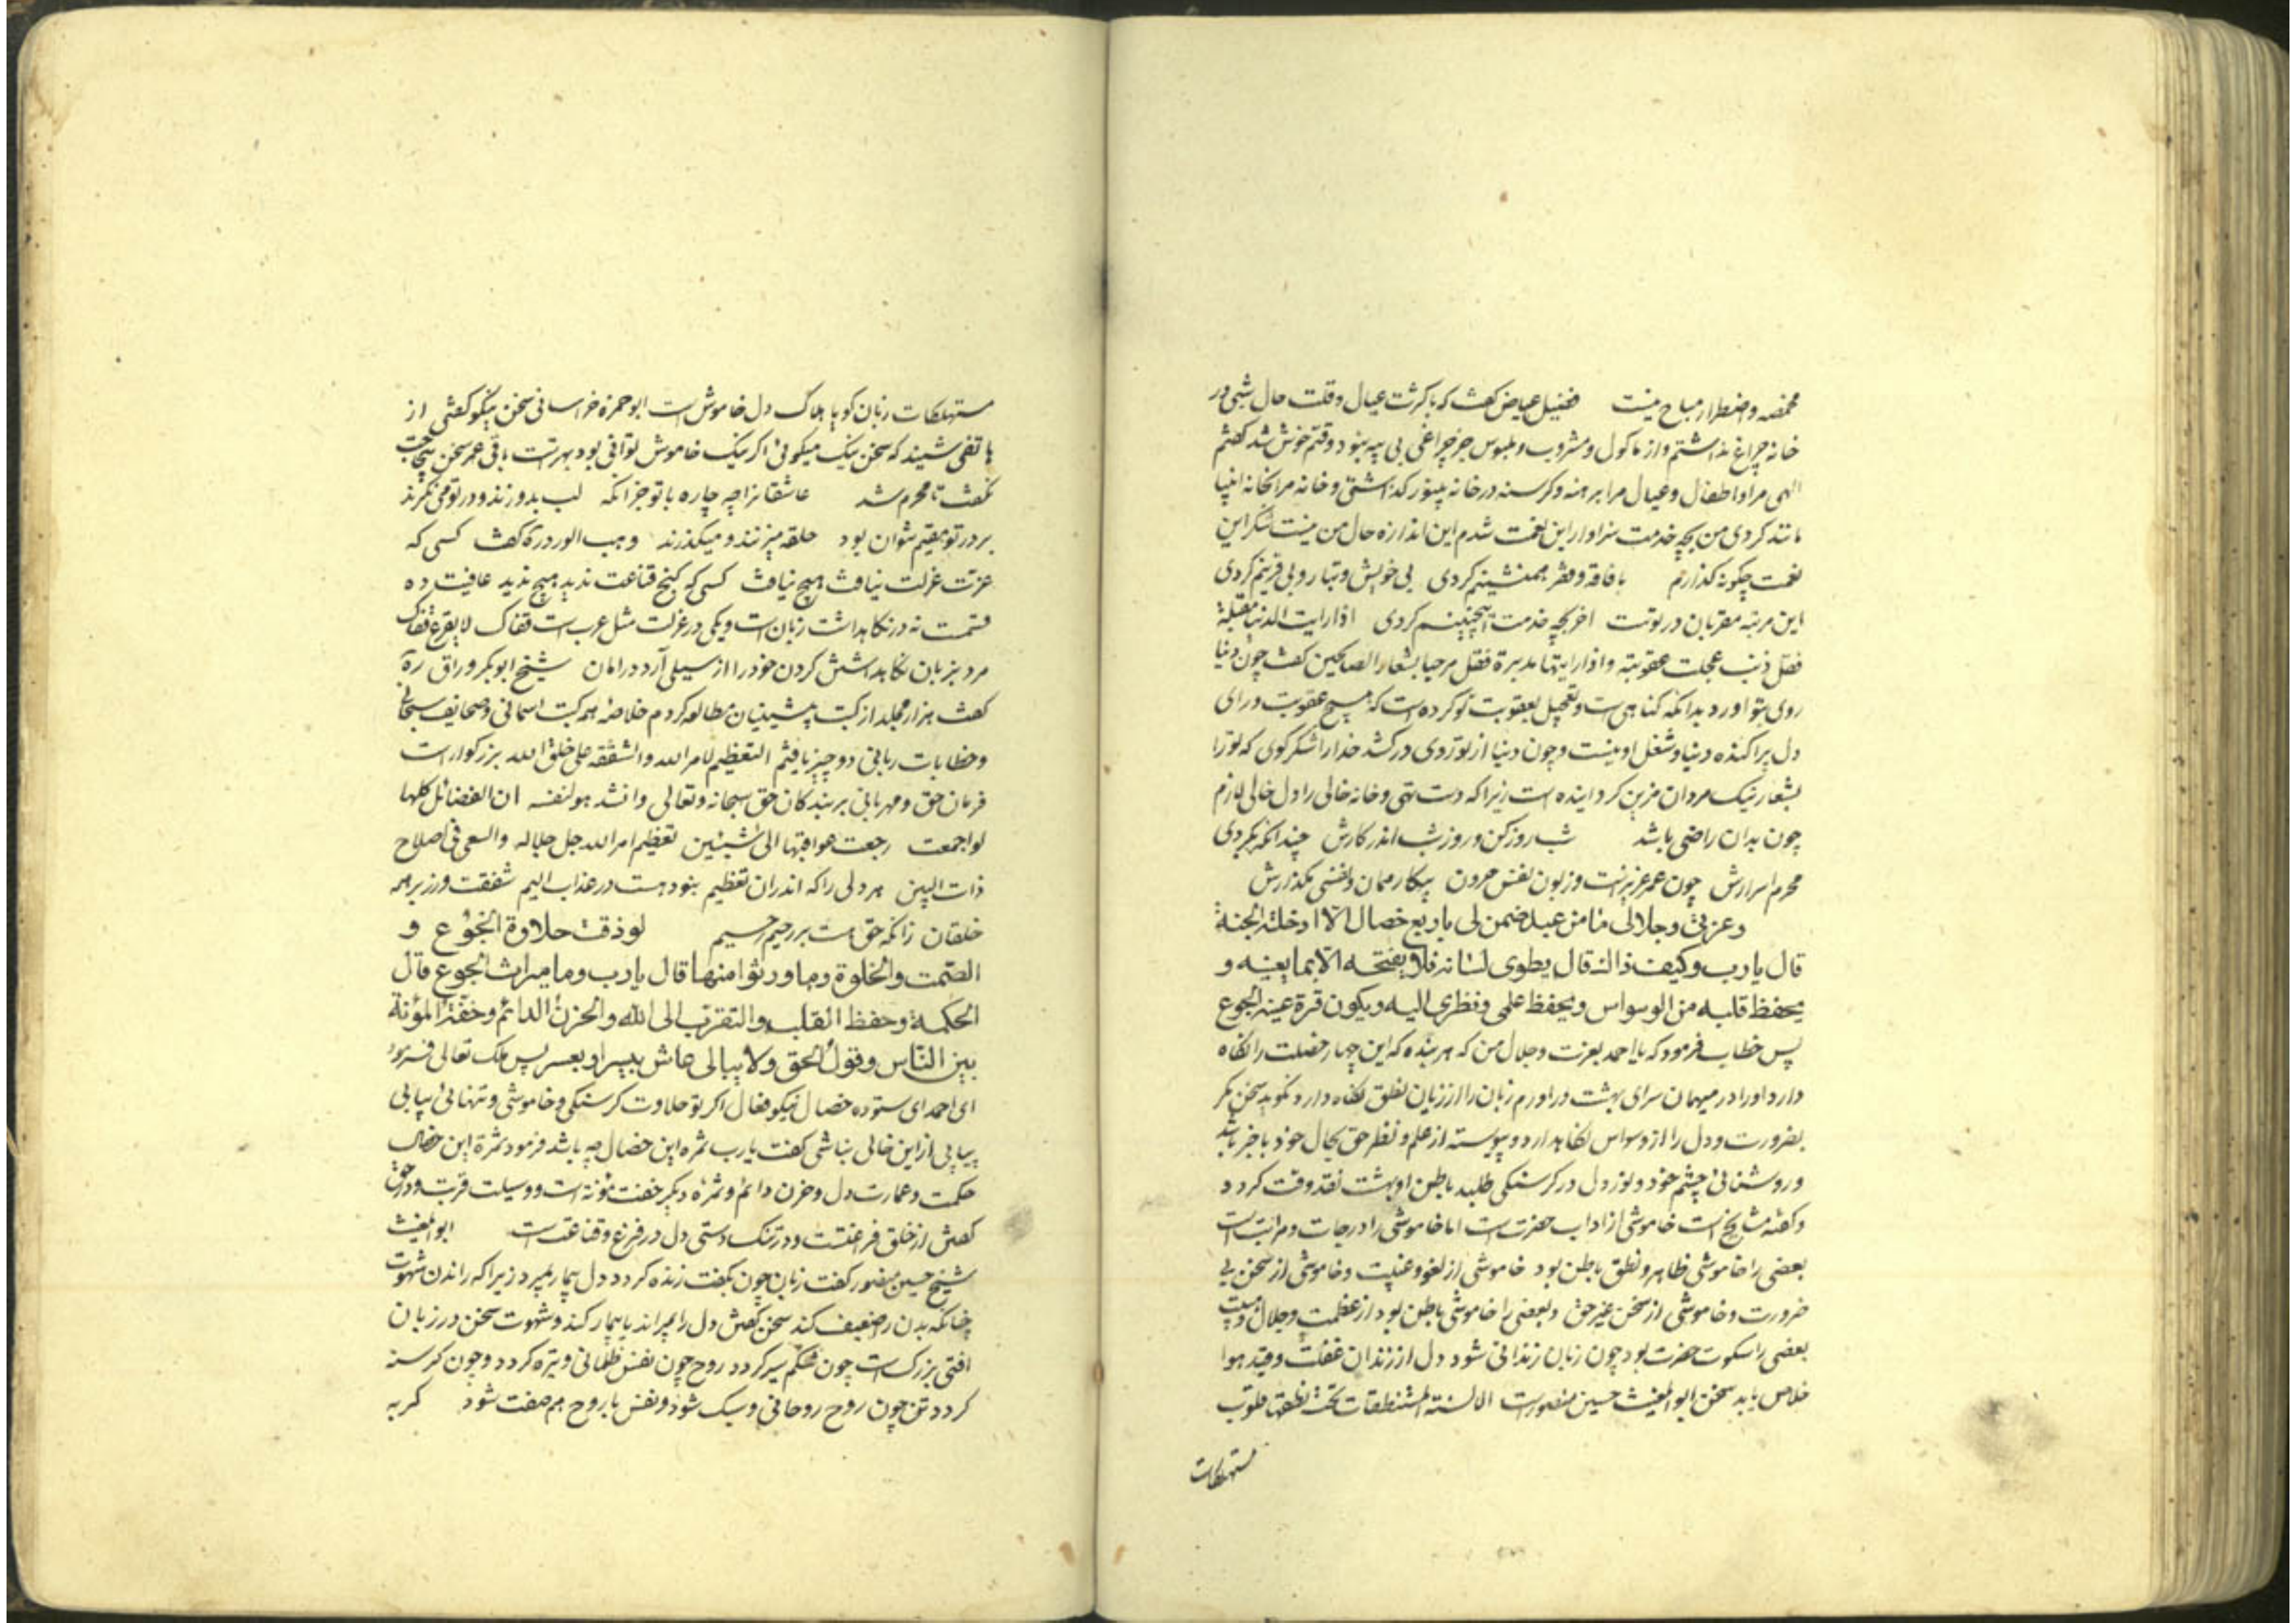 مخمصه و اضطرار مباح نیست فضیل عیاض کفت که با کثرت عیال و قلت حال شبی در
خانه چراغ نداشتم و از ماکول و مشروب و ملبوس جز چراغی بی پیه نبود وقتم خوش شد کفتم
الهی مرا و اطفال و عیال مرا برهنه و کرسنه در خانه بی نور کذاشتی و خانه مرا بخانه انبیا
مانند کردی من بچه خدمت سزاوار این نعمت شدم این اندازه حال من نیست شکر این
نعمت چکونه کذارم با فاقه و فقر همنشینم کردی بی خویش و تبار و بی قرینم کردی
این مرتبه مقربان در توست اخر بچه خدمت اینچنینم کردی اذا رایت الدنیا مقبلة
فقل ذنب عجلت عقوبته و اذا رایتها مدبرة فقل مرحبا بشعار الصالحین کفت چون دنیا
روی بتو اورد بدانکه کناهی است و تعجیل بعقوبت تو کرده است که هیچ عقوبت ورای
دل پراکنده دنیا و شغل او نیست و چون دنیا از تو روی درکشد خدا را شکر کوی که تو را
بشعار نیک مردان مزین کردانیده است زیرا که دست تهی و خانه خالی را دل خالی لازم
چون بدان راضی باشد شب روز کن و روز شب اندر کارش چندانکه بکردی
محرم اسرارش چون عمر عزیزست و زبون نفس حرون بیکار ممان و نفسی مکذارش
و عزتی و جلالی ما من عبد ضمن لی باربع خصال الا ادخلته الجنة
قال یارب و کیف ذالک قال یطوی لسانه فلا یفتحه الا بما یعنیه و
یحفظ قلبه من الوسواس و یحفظ علمی و نظری الیه و یکون قرة عینه الجوع
پس خطاب فرمود که یا احمد بعزت و جلال من که هر بنده که این چهار خصلت را نکاه
دارد او را در میهمان سرای بهشت دراورم زبان را از زیان نطق نکاه دارد نکوید سخن مکر
بضرورت و دل را از وسواس نکاهدارد و پیوسته از علم و نظر حق بحال خود با خبر باشد
و روشنائی چشم خود و نور دل در کرسنکی طلبد باطن او بهشت نقد وقت کردد
و کفته مشایخ است خاموشی از اداب حضرت است اما خاموشی را درجات و مراتب است
بعضی را خاموشی ظاهر و نطق باطن بود خاموشی از لغو و غیبت و خاموشی از سخن بی
ضرورت و خاموشی از سخن غیر حق و بعضی را خاموشی باطن بود از عظمت و جلال و هیبت
بعضی را سکوت حضرت بود چون زبان زندانی شود دل از زندان غفلت و قید هوا
خلاص یابد سخن ابوالمغیث حسین منصورست الالسنة المستنطقات تحت نطقها قلوب
مستهلکات
مستهلکات زبان کویا هلاک دل خاموش است ابو حمزه خراسانی سخن نیکو کفتی از
هاتفی شنید که سخن نیک میکوئی اکر نیک خاموش توانی بود بهترست باقی عمر سخن
نکفت تا محرم شد عاشقانرا چه چاره با تو جز انکه لب بدوزند و در تو می نکرند
بر در تو مقیم نتوان بود حلقه میزنند و میکذرند وهب الورد رة کفت کسی که
عزت عزلت نیافت هیچ نیافت کسی که کنج قناعت ندید هیچ ندید عافیت ده
قسمت نه در نکاهداشت زبان است و یکی در عزلت مثل عرب است قفاک لا یقرع قفاک
مرد بزبان نکاهداشتن کردن خود را از سیلی آرد در امان شیخ ابو بکر وراق رة
کفت هزار مجلد از کتب پیشینیان مطالعه کردم خلاصه همه کتب اسمانی و صحائف سبحانی
و خطابات ربانی دو چیز یافتم التعظیم لامر الله و الشفقه علی خلق الله بزرکوار است
فرمان حق و مهربانی بر بندکان حق سبحانه و تعالی و انشد هو لنفسه ان الفضائل کلها
لو اجمعت رجعت عواقبها الی شیئین تعظیم امر الله جل جلاله والسعی فی اصلاح
ذات البین هر دلی را که اندران تعظیم نبود هست در عذاب الیم شفقت ورز بر همه
خلقان زانکه حق هست بر رحیم رحیم لو ذقت حلاوة الجوع و
الصمت و الخلوة و ما ورثوا منها قال یارب و ما میراث الجوع قال
الحکمة و حفظ القلب و التقرب الی الله و الحزن الدائم و خفة المؤنة
بین الناس و قول الحق و لا یبالی عاش بیسر او بعسر پس ملک تعالی فرمود
ای احمد ای ستوده خصال نیکو فعال اکر تو حلاوت کرسنکی و خاموشی و تنهائی بیابی
بیابی از این خالی نباشی کفت یارب ثمره این خصال چه باشد فرمود ثمرة این خصال
حکمت و عمارت دل و حزن دائم و ثمره دیکر خفت مؤنة است و وسیلت قربت و در حق
کفتن از خلق فراغتست و در تنک دستی دل در فرغ و قناعت است ابوالمغیث
شیخ حسین منصور کفت زبان چون بکفت زنده کردد دل بیمار بمیرد زیرا که راندن شهوت
چنانکه بدن را ضعیف کند سخن کفتن دل را بمیراند یا بیمار کند و شهوت سخن در زبان
افتی بزرک است چون شکم سیر کردد روح چون نفس ظلمانی و تیره کردد و چون کرسنه
کردد تن چون روح روحانی و سبک شود و نفس با روح هم صفت شود کربه